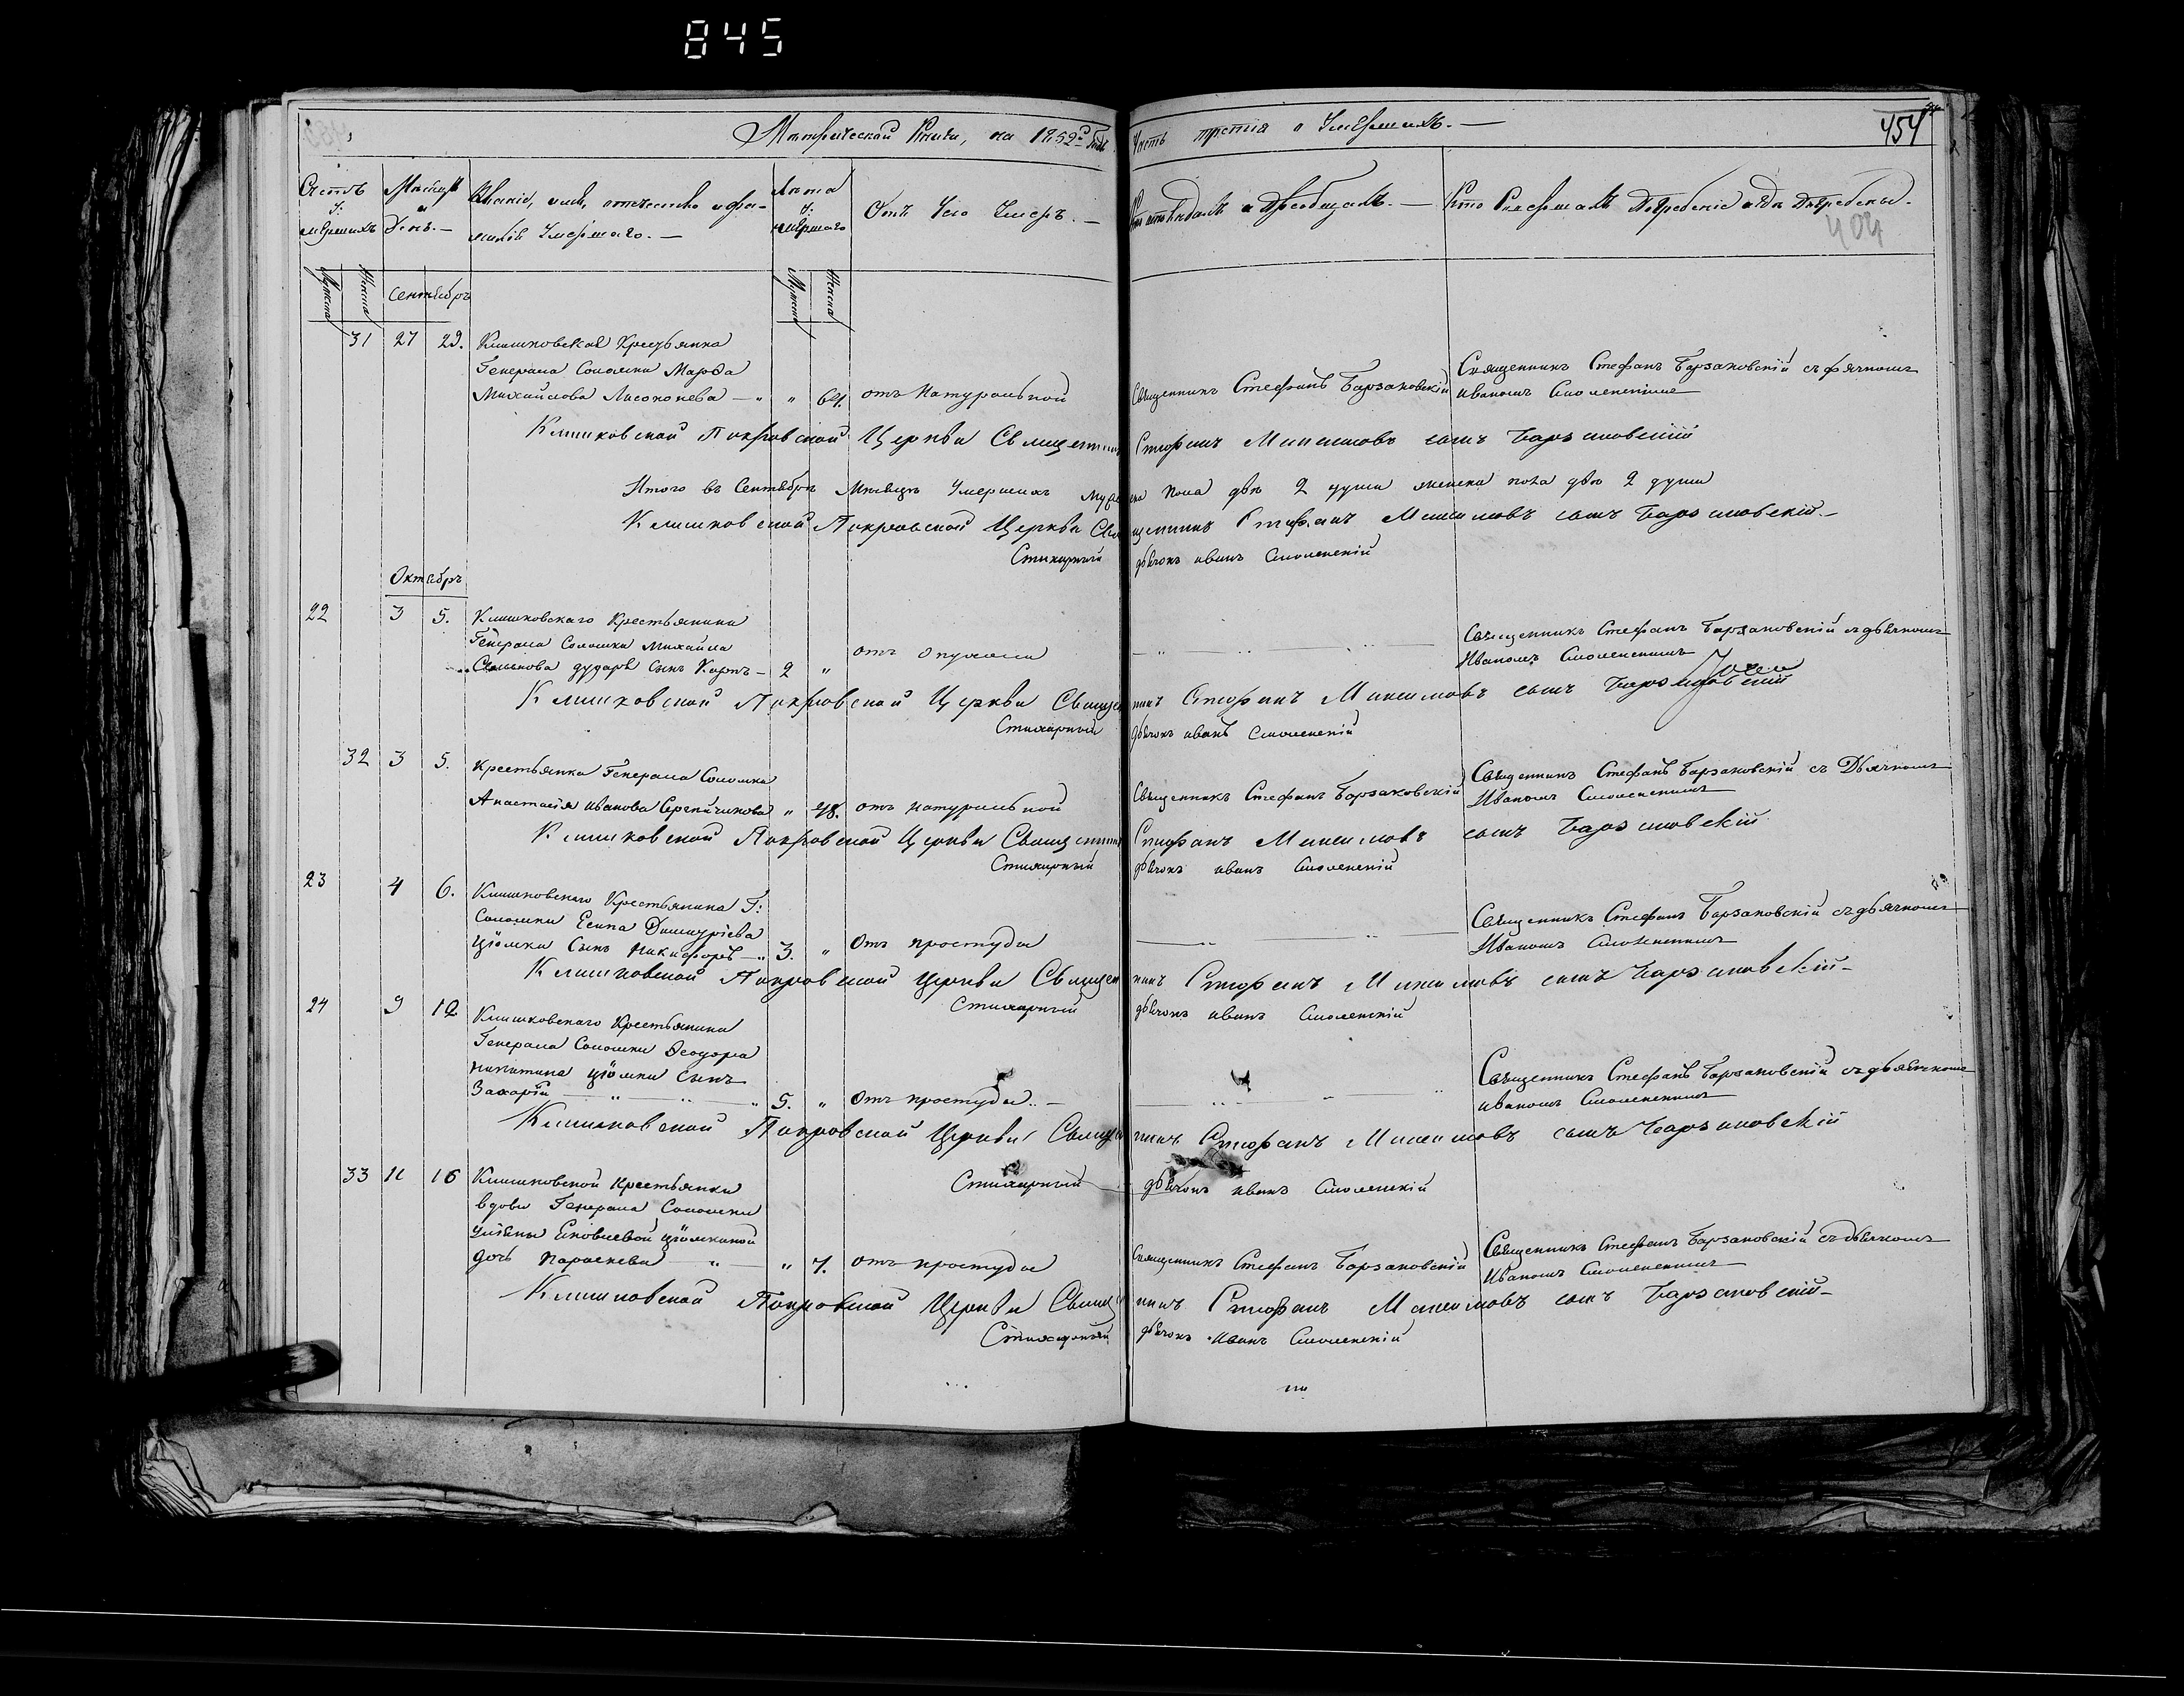 845
Метрической Книги, на 1852й Годъ Часть третія о Умершихъ.
454
Счетъ у: мершихъ
Мѣсяцъ и День.
Званіе, имя, отечество и фамилія Умершаго.
Лѣта у: мершаго
Отъ Чего Умеръ.
Кто исповѣдалъ и Пріобщалъ.
Кто Совершалъ Погребеніе и гдѣ Погребены.
404
Мужска Женска
Сентябрь
Мужска Женска
31 27 29. Клишковская Крестьянка
Генерала Соломки Марфа
Михайлова — " " 64. отъ Натуральной
Священникъ Стефанъ Барзаковскій
Священникъ Стефанъ Барзаковскій съ дячкомъ
Иваномъ Смоленскимъ
Клишковской Покровской Церкви Священникъ Стефанъ Максимовъ сынъ Барзаковскій
Итого въ Сентябрѣ Мѣсяцѣ Умершихъ мужеска пола двѣ 2 души женска пола двѣ 2 души
Клишковской Покровской Церкви Священникъ Стефанъ Максимовъ сынъ Барзаковскій.
Стихарный дьячокъ иванъ Смоленскій
Октябрь
22 3 5. Клишковскаго Крестьянина
Генерала Соломки Михайла
дударя Сынъ Карпъ — 2 " отъ опухоли
Священникъ Стефанъ Барзаковскій съ дьячкомъ
Иваномъ Смоленскимъ
Клишковской Покровской Церкви Священникъ Стефанъ Максимовъ сынъ Барзаковскій
Стихарный дьячокъ иванъ Смоленскій
32 3 5. Крестьянка Генерала Соломки
Анастасія Иванова " 48. отъ натуральной
Священникъ Стефанъ Барзаковскій
Священникъ Стефанъ Барзаковскій съ Дьячкомъ
Иваномъ Смоленскимъ
Клишковской Покровской Церкви Священникъ Стефанъ Максимовъ сынъ Барзаковскій
Стихарный дьячокъ иванъ Смоленскій
23 4 6. Клишковскаго Крестьянина Г:
Соломки Есипа
Цiомки Сынъ Никифоръ — " 3. " Отъ простуды
Священникъ Стефанъ Барзаковскій съ дьячкомъ
Иваномъ Смоленскимъ
Клишковской Покровской Церкви Священникъ Стефанъ Максимовъ сынъ Барзаковскій
Стихарный дьячокъ иванъ Смоленскій
24 9 12 Клишковскаго Крестьянина
Генерала Соломки Ѳеодора
Никитина Цiомки Сынъ
Захарій — " 5. " Отъ простуды
Священникъ Стефанъ Барзаковскій съ дьячкомъ
Иваномъ Смоленскимъ
Клишковской Покровской Церкви Священникъ Стефанъ Максимовъ сынъ Барзаковскій
Стихарный дьячокъ иванъ Смоленскій
33 11 16 Клишковской Крестьянки
вдовы Генерала Соломки
Ульяны Цiомкиной
дочь Параскева — " " 7. отъ простуды
Священникъ Стефанъ Барзаковскій
Священникъ Стефанъ Барзаковскій съ дьячкомъ
Иваномъ Смоленскимъ
Клишковской Покровской Церкви Священникъ Стефанъ Максимовъ сынъ Барзаковскій
Стихарный дьячокъ Иванъ Смоленскій